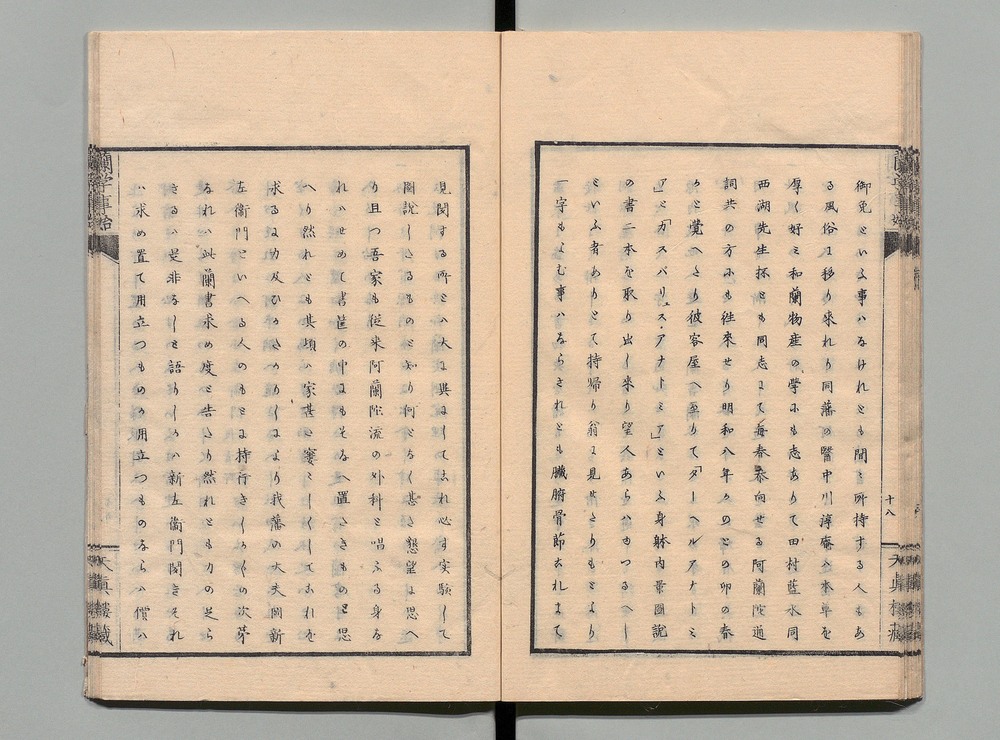 御免といふ事ハなけれとも間々所持する人もあ
る風俗に移り来れり同藩の醫中川淳庵ハ本草を
厚く好ミ和蘭物産の学にも志ありて田村藍水同
西湖先生抔とも同志にて毎春参向せる阿蘭陀通
詞共の方にも往来せり明和八年かのとの卯の春
かと覚へたり彼客屋へ至りて「ターヘルアナトミ
ア」と「カスパリュス・アナトミア」といふ身躰内景圖説
の書二本を取り出し来り望人あらハゆつるへし
といふ者ありとて持帰り翁に見せたりもとより
一字もよむ事ハならされとも臓腑骨節これまて
見聞する所とハ大に異にしてこれ必す実験して
圖説したるものと知り何となく甚た懇望に思へ
り且つ吾家も従来阿蘭陀流の外科を唱ふる身な
れハせめて書筐の中にもそなへ置たきものと思
へり然れとも其頃ハ家甚た窶しくしてこれを
求るに力及ひかたかりしにより我藩の大夫岡新
左衛門といへる人のもとに持行きしか〱の次第
なれハ此蘭書求め度と告たり然れとも力の足ら
さるハ是非なしと語りしかハ新左衛門聞きそれ
ハ求め置て用立つものか用立つものならハ價ハ
蘭学事始
十八
天真樓蔵